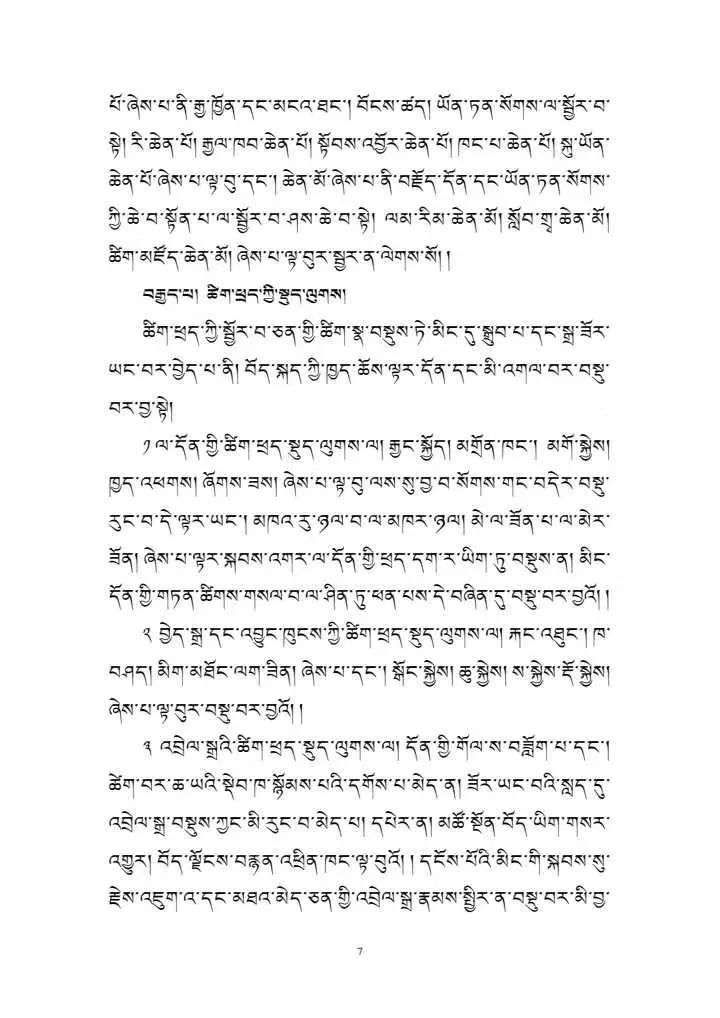 པོ་ཞེས་པ་ནི་རྒྱ་ཁྱོན་དང་མངའ་ཐང་། བོངས་ཚད། ཡོན་ཏན་སོགས་ལ་སྦྱོར་བ་
སྟེ། རི་ཆེན་པོ། རྒྱལ་ཁབ་ཆེན་པོ། སྟོབས་འབྱོར་ཆེན་པོ། ཁང་པ་ཆེན་པོ། སྐུ་ཡོན་
ཆེན་པོ་ཞེས་པ་ལྟ་བུ་དང་། ཆེན་མོ་ཞེས་པ་ནི་བརྗོད་དོན་དང་ཡོན་ཏན་སོགས་
ཀྱི་ཆེ་བ་སྟོན་པ་ལ་སྦྱོར་བ་ཤས་ཆེ་བ་སྟེ། ལམ་རིམ་ཆེན་མོ། སློབ་གྲྭ་ཆེན་མོ།
ཚིག་མཛོད་ཆེན་མོ། ཞེས་པ་ལྟ་བུར་སྦྱར་ན་ལེགས་སོ། །
བརྒྱད་པ། ཚིག་ཕྲད་ཀྱི་སྡུད་ལུགས།
ཚིག་ཕྲད་ཀྱི་སྦྱོར་བ་ཅན་གྱི་ཚིག་སྣ་བསྡུས་ཏེ་མིང་དུ་སྒྲུབ་པ་དང་སྒྲ་ཟོར་
ཡང་བར་བྱེད་པ་ནི། བོད་སྐད་ཀྱི་ཁྱད་ཆོས་ལྟར་དོན་དང་མི་འགལ་བར་བསྡུ་
བར་བྱ་སྟེ།
༡ ལ་དོན་གྱི་ཚིག་ཕྲད་སྡུད་ལུགས་ལ། རྒྱང་སྐྱོད། མགྲོན་ཁང་། མགོ་སྐྱེས།
ཁྱད་འཕགས། ཞོགས་ཟས། ཞེས་པ་ལྟ་བུ་ལས་སུ་བྱ་བ་སོགས་གང་བདེར་བསྡུ་
རུང་བ་དེ་ལྟར་ཡང་། མཁའ་རུ་ཉལ་བ་ལ་མཁར་ཉལ། མེ་ལ་ཟོན་པ་ལ་མེར་
ཟོན། ཞེས་པ་ལྟར་སྐབས་འགར་ལ་དོན་གྱི་ཕྲད་དག་ར་ཡིག་ཏུ་བསྡུས་ན། མིང་
དོན་གྱི་གཏན་ཚིགས་གསལ་བ་ལ་ཤིན་ཏུ་ཕན་པས་དེ་བཞིན་དུ་བསྡུ་བར་བྱའོ། །
༢ བྱེད་སྒྲ་དང་འབྱུང་ཁུངས་ཀྱི་ཚིག་ཕྲད་སྡུད་ལུགས་ལ། རྐང་འཐུང་། ཁ་
བཤད། མིག་མཐོང་ལག་ཟིན། ཞེས་པ་དང་། སྒོང་སྐྱེས། ཆུ་སྐྱེས། ས་སྐྱེས་རྡོ་སྐྱེས།
ཞེས་པ་ལྟ་བུར་བསྡུ་བར་བྱའོ། །
༣ འབྲེལ་སྒྲའི་ཚིག་ཕྲད་སྡུད་ལུགས་ལ། དོན་གྱི་གོལ་ས་བཟློག་པ་དང་།
ཚེག་བར་ཆ་ཡའི་སྡེབ་ཁ་སྙོམས་པའི་དགོས་པ་མེད་ན། ཟོར་ཡང་བའི་སླད་དུ་
འབྲེལ་སྒྲ་བསྡུས་ཀྱང་མི་རུང་བ་མེད་པ། དཔེར་ན། མཚོ་སྔོན་བོད་ཡིག་གསར་
འགྱུར། བོད་ལྗོངས་བརྙན་འཕྲིན་ཁང་ལྟ་བུའོ། །དངོས་པོའི་མིང་གི་སྐབས་སུ་
རྗེས་འཇུག་འ་དང་མཐའ་མེད་ཅན་གྱི་འབྲེལ་སྒྲ་རྣམས་སྤྱིར་ན་བསྡུ་བར་མི་བྱ་
7